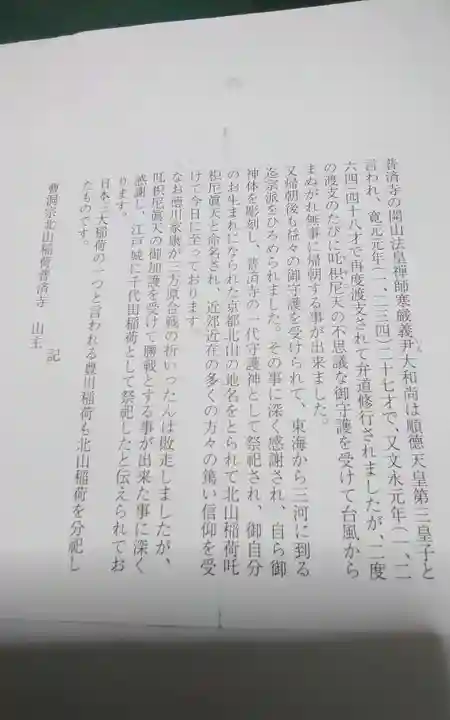 普済寺の開山法皇禅師寒巌義尹大和尚は順徳天皇第三皇子と
言われ、寛元元年(一、二三四)二十七才で、又文永元年(一、二
六四)四十八才で再度渡支されて弁道修行されましたが、二度
の渡支のたびに吒枳尼天の不思議な御守護を受けて台風から
まぬがれ無事に帰朝する事が出来ました。
又帰朝後も益々の御守護を受けられて、東海から三河に到る
迄宗派をひろめられました。その事に深く感謝され、自ら御
神体を彫刻し、普済寺の一代守護神として祭祀され、御自分
のお生まれになられた京都北山の地名をとられて北山稲荷吒
枳尼眞天と命名され、近郊近在の多くの方々の篤い信仰を受
けて今日に至っております。
なお徳川家康が三方原合戦の折いったんは敗走しましたが、
吒枳尼眞天の御加護を受けて勝戦とする事が出来た事に深く
感謝し、江戸城に千代田稲荷として祭祀したと伝えられてお
ります。
日本三大稲荷の一つと言われる豊川稲荷も北山稲荷を分祀し
たものです。
曹洞宗北山稲荷普済寺 山主 記